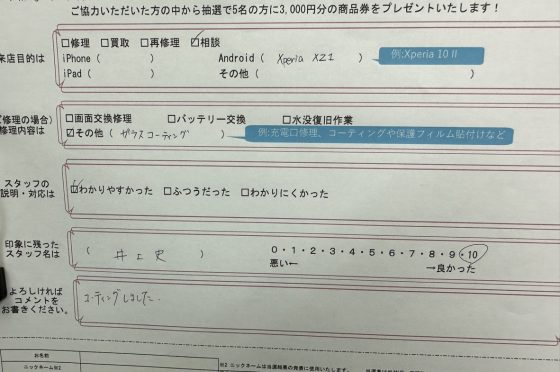 ご協力いただいた方の中から抽選で5名の方に3,000円分の商品券をプレゼントいたします！
来店目的は
□修理 □買取 □再修理 ☑相談
iPhone ( ) Android ( Xperia XZ1 ) 例:Xperia 10 II
iPad ( ) その他 ( )
(修理の場合)
修理内容は
□画面交換修理 □バッテリー交換 □水没復旧作業
☑その他 ( ガラスコーティング ) 例:充電口修理、コーティングや保護フィルム貼付けなど
スタッフの
説明・対応は
☑わかりやすかった □ふつうだった □わかりにくかった
印象に残った
スタッフ名は
( 井上 )
0・1・2・3・4・5・6・7・8・9・10
悪い← →良かった
よろしければ
コメントを
お書きください。
コーティングしました.
お名前
ニックネーム※2
※2 ニックネームは当選結果の発表に使用いたします。